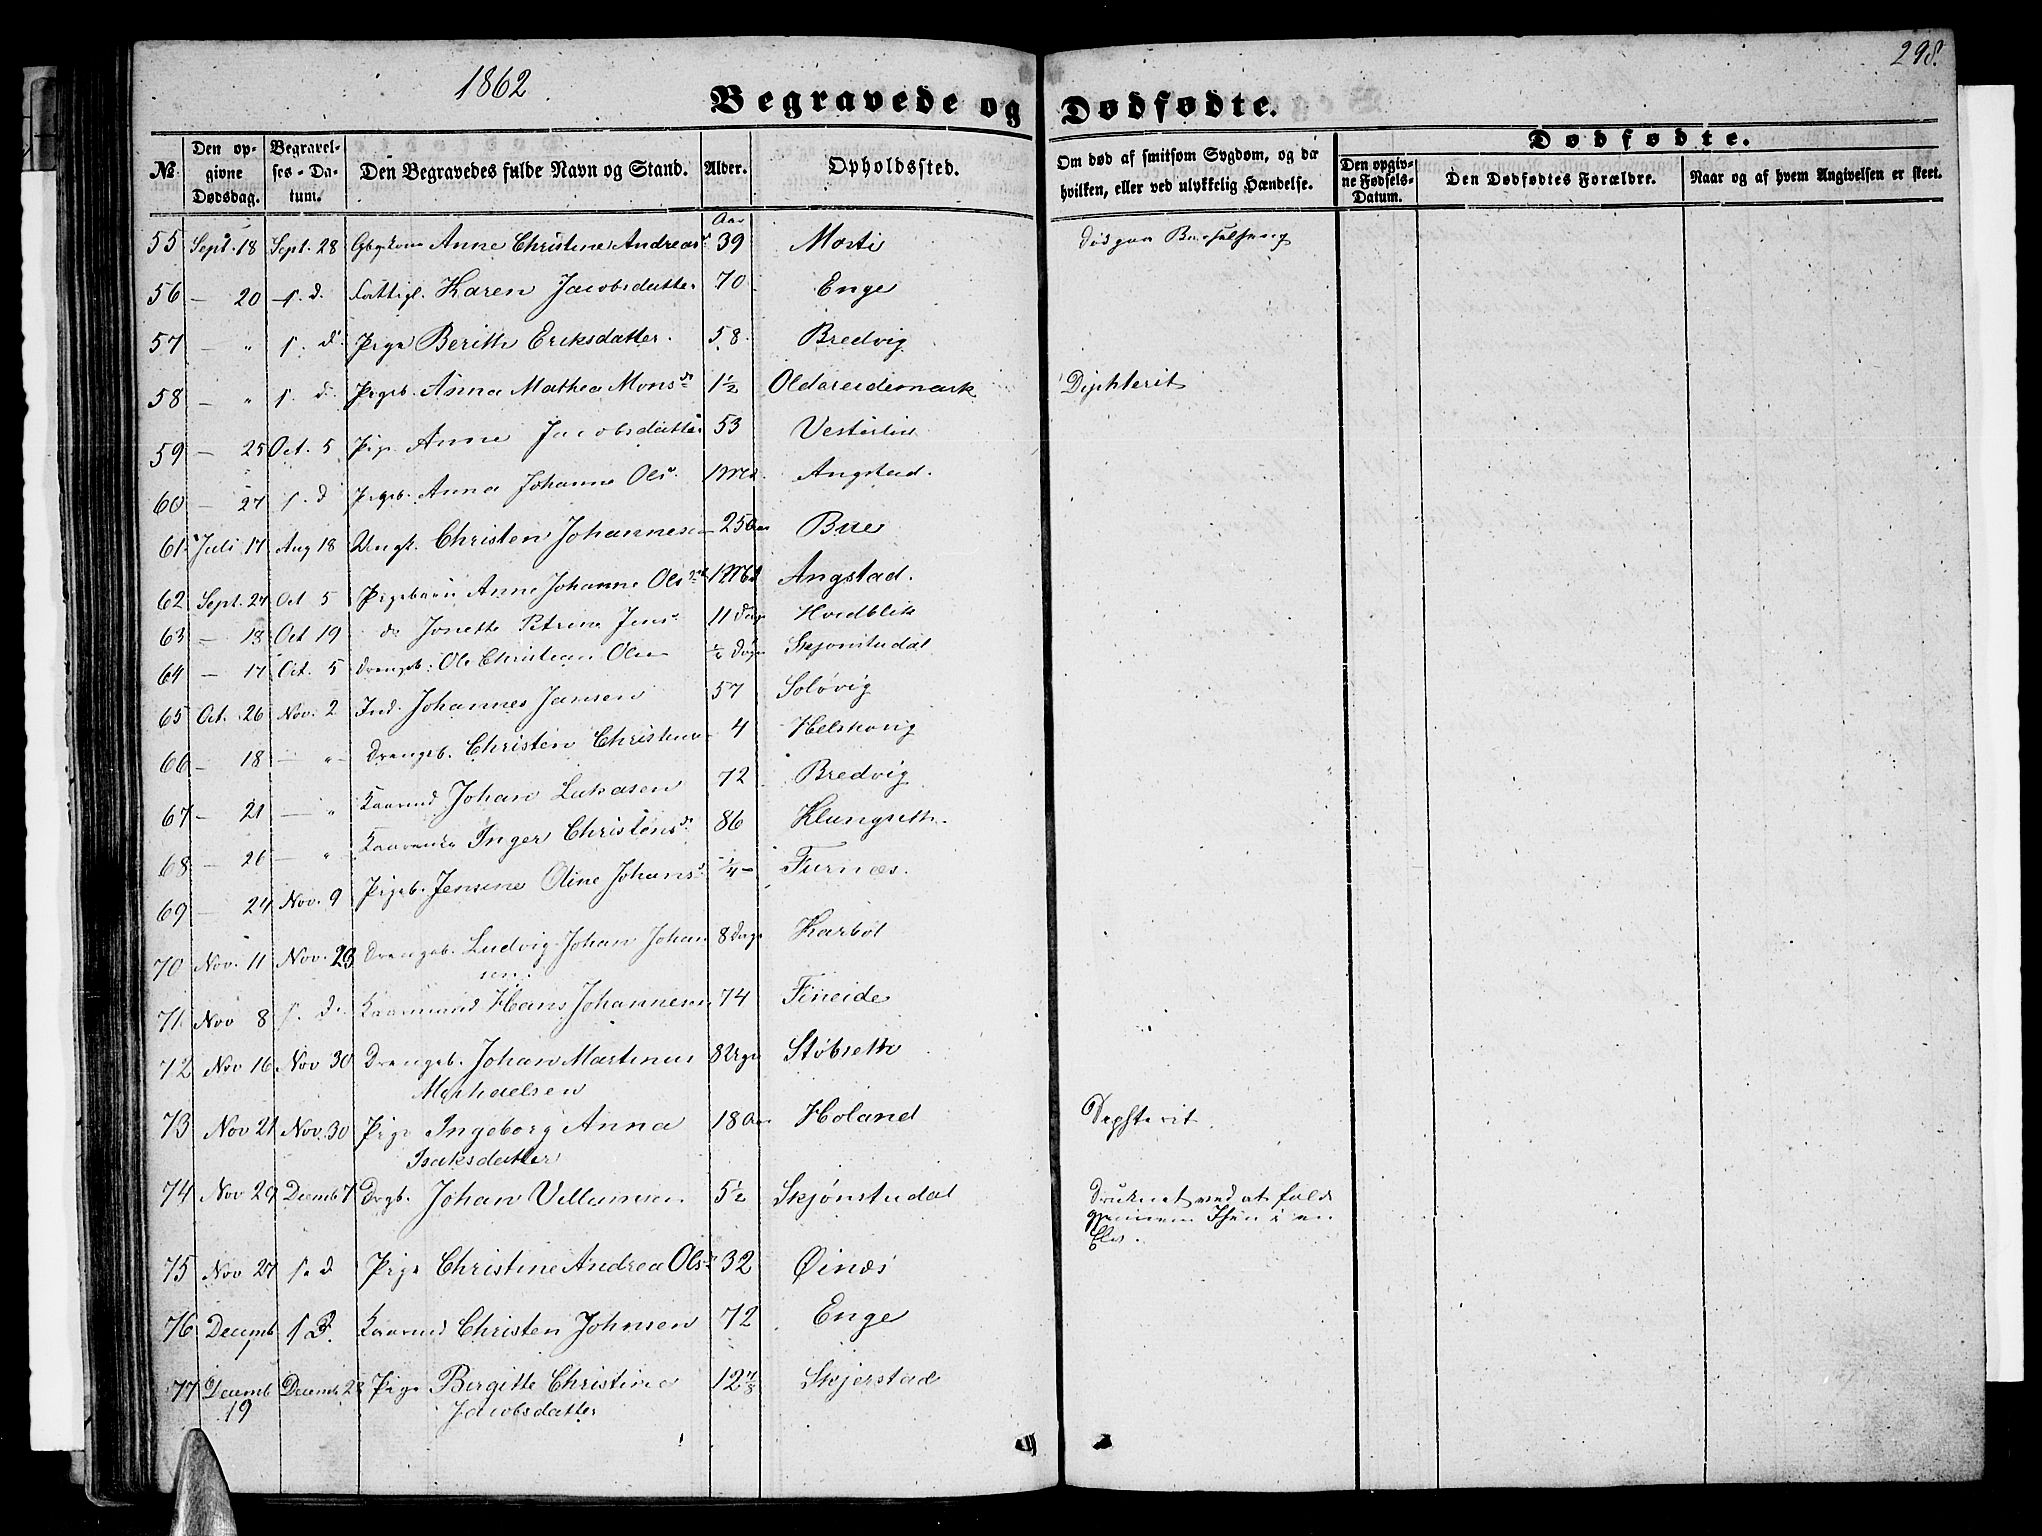 298.
1862
Begravede og Dødfødte.
Dødfødte.
No. Den opgivne Dødsdag. Begravelses-Datum. Den Begravedes fulde Navn og Stand. Alder. Opholdssted. Om død af smitsom Sygdom, og da hvilken, eller ved ulykkelig Hændelse. Den opgivne Fødsels-Datum. Den Dødfødtes Forældre. Naar og af hvem Angivelsen er skeet.
Aar
55 Sept. 18 Sept. 28 Anne Christine Andreas 39 Mosti
56 — 20 s. d. Karen Jacobsdatter 70 Enge
57 — " s. d. Pige Berith Eriksdatter. 58. Bredvig
58 — " s. d. Pigeb. Anna Mathea Monsdr 1½ Oldereidemark Diphterit
59 — 25 Oct. 5 Pige Anne Jacobsdatter 53
60 — 27 s. d Pigeb. Anna Johanne Ols 1 Md. Angstad.
61 Juli 17 Aug 18 Ungk. Christen Johannesen 25 Aar Bue
62 Sept. 27 Oct 5 Pigebarn Anne Johanne Ols 1 Md Angstad.
63 — 18 Oct 19 do Jonette Petrine Jens 11 Dage Hvedblik
64 — 17 Oct. 5 Drengeb. Ole Christian Olsen ½ Dage Skjønstudal
65 Oct. 26 Nov. 2 Ind. Johannes Jansen 57 Soløvig
66 — 18 — " Drengeb. Christen 4
67 — 21 — " Kaarmd Johan Lukasen 72 Bredvig
68 — 26 — " Inger Christensdr 86 Klungseth.
69 — 24 Nov. 9 Pigeb. Jensine Oline Johans ¼ — Furnæs.
70 Nov. 11 Nov. 23 Drengeb. Ludvig Johan Johan 8 Dage Karbøl
sen.
71. Nov 8 s. d. Kaarmand Hans Johannesen 74 Fineide
72 Nov 16 Nov 30 Drengeb. Johan Martinus 8 Uger Støbseth
Mephaelsen
73 Nov 21 Nov. 30 Pige Ingeborg Anna 18 Aar Holand
Isaksdatter
74 Nov 29 Decemb 7 Drgb. Johan Villumsen 5½ Skjønstudal Druknet ved at falde
gjennem Isen i en
Elv.
75 Nov 27 s. d Pige Christine Andrea Ols 32 Øinæs
76 Decemb s D. Kaarmd Christen Johnsen 72 Enge
1
77 Decemb Decemb 28 Pige Birgitte Christine 12 7/8 Skjerstad
19 Jacobsdatter